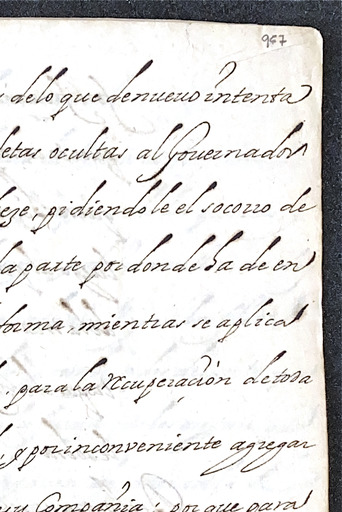 967
delo que denuevo intenta
letas ocultas al Governador
eze, pidiendole el socorro de
la parte por donde ha de en
forma, mientras se aplica
para la recuperación de toda
y por inconveniente agregar
Compañia; porque para